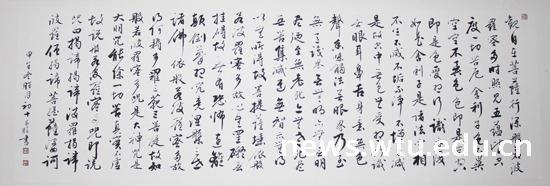 觀自在菩薩行深般若波
羅蜜多時照見五蘊皆空
度一切苦厄舍利子色不異
空空不異色色即是空空
即是色受想行識亦復
如是舍利子是諸法空相
不生不滅不垢不淨不增不減
是故空中無色無受想行識
無眼耳鼻舌身意無色
聲香味觸法無眼界乃至
無意識界無無明亦無無明
盡乃至無老死亦無老死盡
無苦集滅道無智亦無得
以無所得故菩提薩埵依般
若波羅蜜多故心無罣礙無
罣礙故無有恐怖遠離
顛倒夢想究竟涅槃三世
諸佛依般若波羅蜜多故
得阿耨多羅三藐三菩提故知
般若波羅蜜多是大神咒是
大明咒能除一切苦真實不虛
故說般若波羅蜜多咒即說
咒曰揭諦揭諦波羅揭諦
波羅僧揭諦菩提薩婆訶
甲午冬月初十書
www.wtu.edu.cn